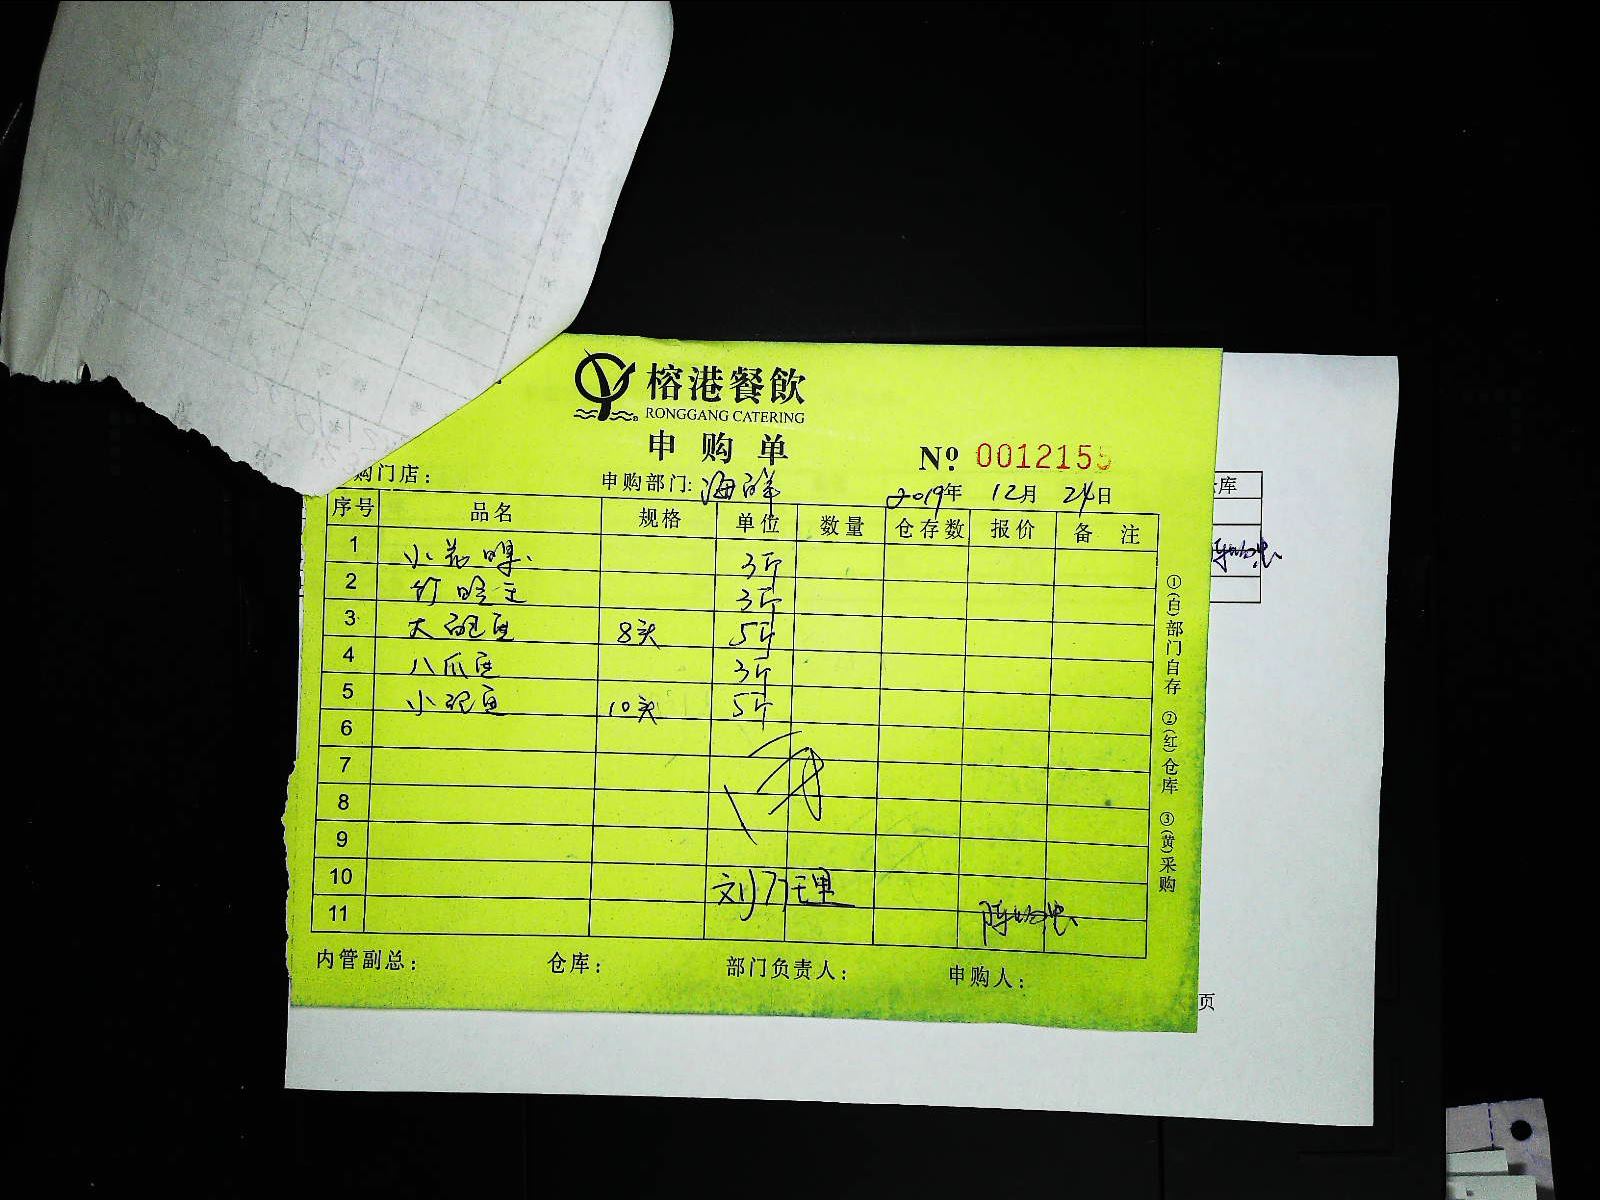 榕港餐飲
RONGGANG CATERING
申购单
№ 0012155
购门店：
申购部门: 海鲜
2019年 12月 24日
序号 品名 规格 单位 数量 仓存数 报价 备注
1 小花螺 3斤
2 竹蛏王 3斤
3 大鲍鱼 8头 5斤
4 八爪鱼 3斤
5 小鲍鱼 10头 5斤
6
7
8
9
10
11
内管副总： 仓库： 部门负责人： 申购人：
①(白)部门自存 ②(红)仓库 ③(黄)采购
库
页